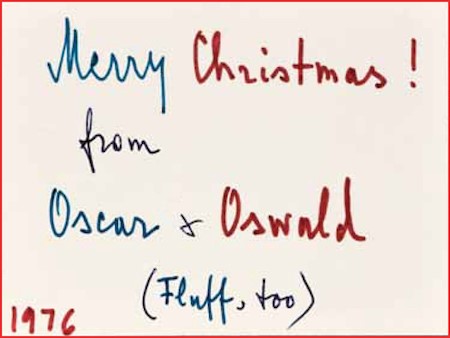 Merry Christmas!
from
Oscar & Oswald
(Fluff, too)
1976